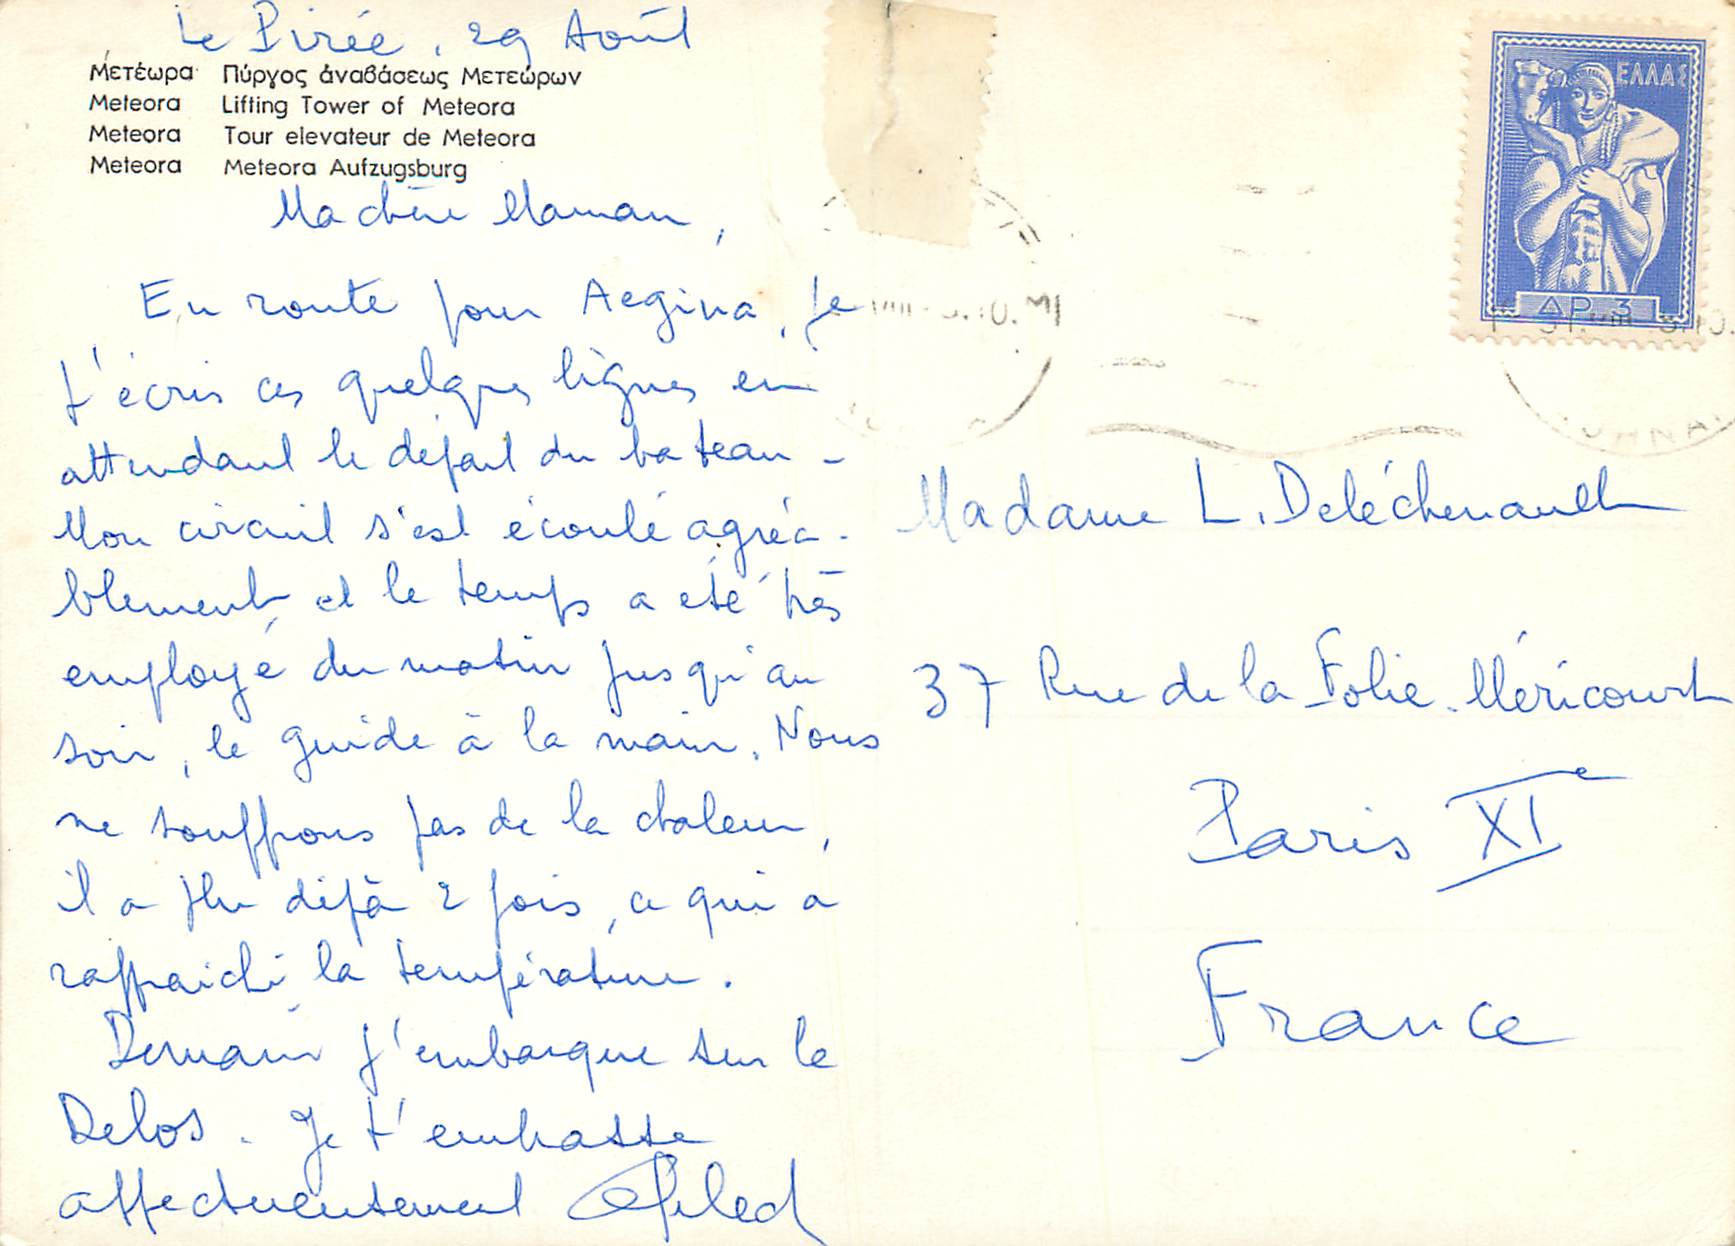 Le Pirée, 29 Août
Μετέωρα Πύργος ἀναβάσεως Μετεώρων
Meteora Lifting Tower of Meteora
Meteora Tour elevateur de Meteora
Meteora Meteora Aufzugsburg
Ma chère Maman,
En route pour Aegina, je
t'écris ces quelques lignes en
attendant le départ du bateau -
Mon circuit s'est écoulé agréa-
blement, et le temps a été très
employé du matin jusqu'au
soir, le guide à la main. Nous
ne souffrons pas de la chaleur,
il a plu déjà 2 fois, ce qui a
raffraichi la température.
Demain j'embarque sur le
Delos. Je t'embrasse
affectueusement
ΕΛΛΑΣ
ΔΡ 3
Madame L. Deléchenault
37 Rue de la Folie-Méricourt
Paris XIe
France